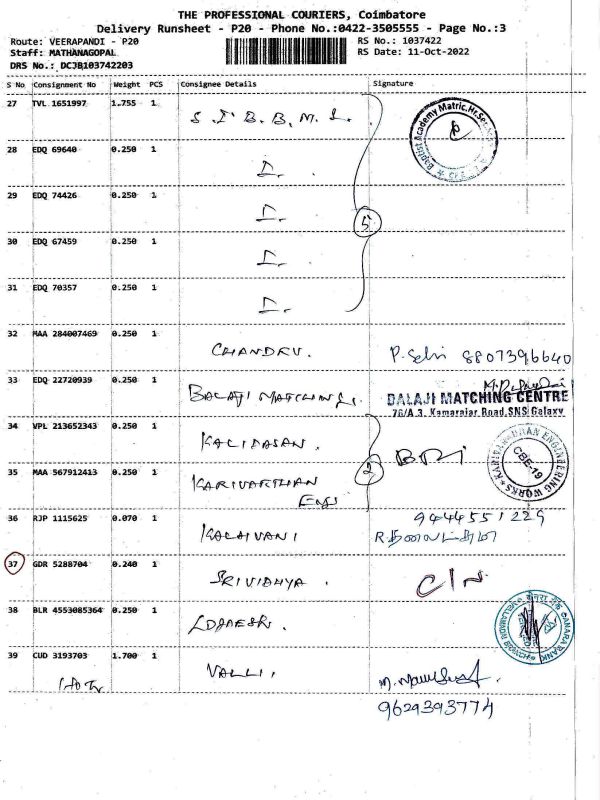 THE PROFESSIONAL COURIERS, Coimbatore
Delivery Runsheet - P20 - Phone No.:0422-3505555 - Page No.:3
Route: VEERAPANDI - P20 RS No.: 1037422
Staff: MATHANAGOPAL RS Date: 11-Oct-2022
DRS No.: DCJB103742203
S No Consignment No Weight PCS Consignee Details Signature
27 TVL 1651997 1.755 1 S. I. B. B. M. L. Baptist Academy Matric.Hr.Sec
28 EDQ 69640 0.250 1
29 EDQ 74426 0.250 1
5
30 EDQ 67459 0.250 1
31 EDQ 70357 0.250 1
32 MAA 284007469 0.250 1 CHANDRU. P. Selvi 8807396640
33 EDQ 22720939 0.250 1 BALAJI MATCHING. BALAJI MATCHING CENTRE
76/A.3. Kamarajar Road.SNS Galaxy
34 VPL 213652343 0.250 1 KALIDASAN.
2
KARIVARADHAN ENGINEERING WORKS CBE-19
35 MAA 567912413 0.250 1 KARIVARTHAN
36 RJP 1115625 0.070 1 KALAIVANI 9444551229
37 GDR 5288704 0.240 1 SRIVIDHYA.
38 BLR 4553085364 0.250 1 CANARA BANK
39 CUD 3193703 1.700 1 VALLI.
9629393774